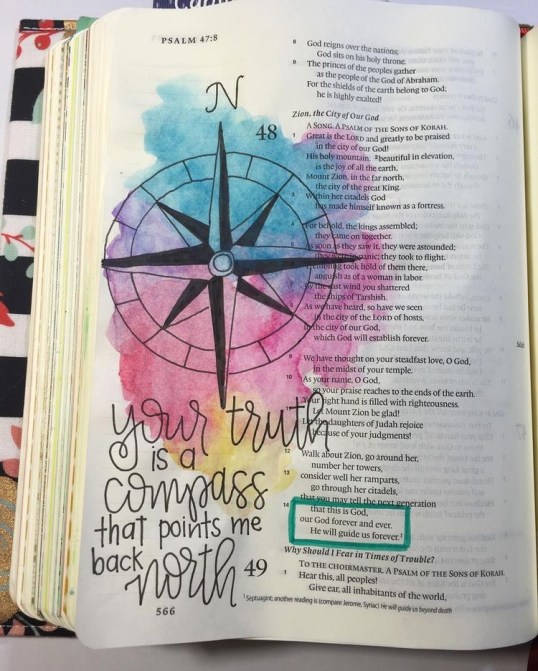 PSALM 47:8
N
your truth
is a
compass
that points me
back
north
566
8 God reigns over the nations;
God sits on his holy throne.
9 The princes of the peoples gather
as the people of the God of Abraham.
For the shields of the earth belong to God;
he is highly exalted!
Zion, the City of Our God
48 A SONG. A PSALM OF THE SONS OF KORAH.
1 Great is the LORD and greatly to be praised
in the city of our God!
His holy mountain, 2 beautiful in elevation,
is the joy of all the earth,
Mount Zion, in the far north,
the city of the great King.
3 Within her citadels God
has made himself known as a fortress.
4 For behold, the kings assembled;
they came on together.
5 As soon as they saw it, they were astounded;
they were in panic; they took to flight.
took hold of them there,
anguish as of a woman in labor.
By the east wind you shattered
the ships of Tarshish.
As we have heard, so have we seen
in the city of the LORD of hosts,
in the city of our God,
which God will establish forever.
9 We have thought on your steadfast love, O God,
in the midst of your temple.
10 As your name, O God,
so your praise reaches to the ends of the earth.
Your right hand is filled with righteousness.
Let Mount Zion be glad!
Let the daughters of Judah rejoice
because of your judgments!
12 Walk about Zion, go around her,
number her towers,
13 consider well her ramparts,
go through her citadels,
that you may tell the next generation
14 that this is God,
our God forever and ever.
He will guide us forever.1
Why Should I Fear in Times of Trouble?
49 TO THE CHOIRMASTER. A PSALM OF THE SONS OF KORAH.
1 Hear this, all peoples!
Give ear, all inhabitants of the world,
1 Septuagint; another reading is (compare Jerome, Syriac) He will guide us beyond death